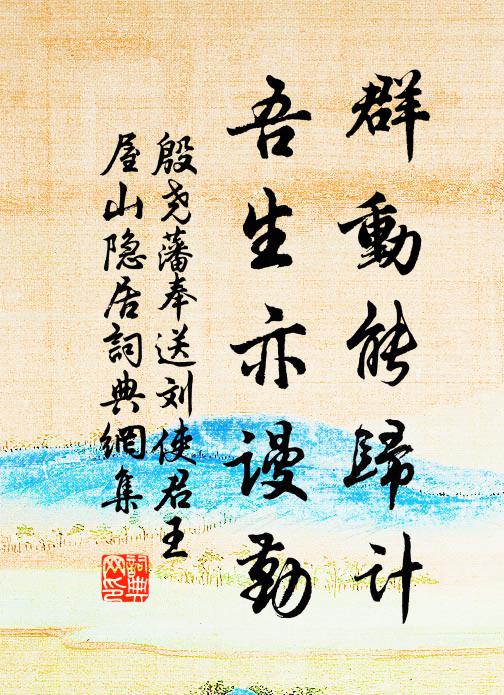 群動能歸計
吾生亦謾勤
殷尧藩奉送刘使君王
屋山隐居詞典網集
詞典
网印